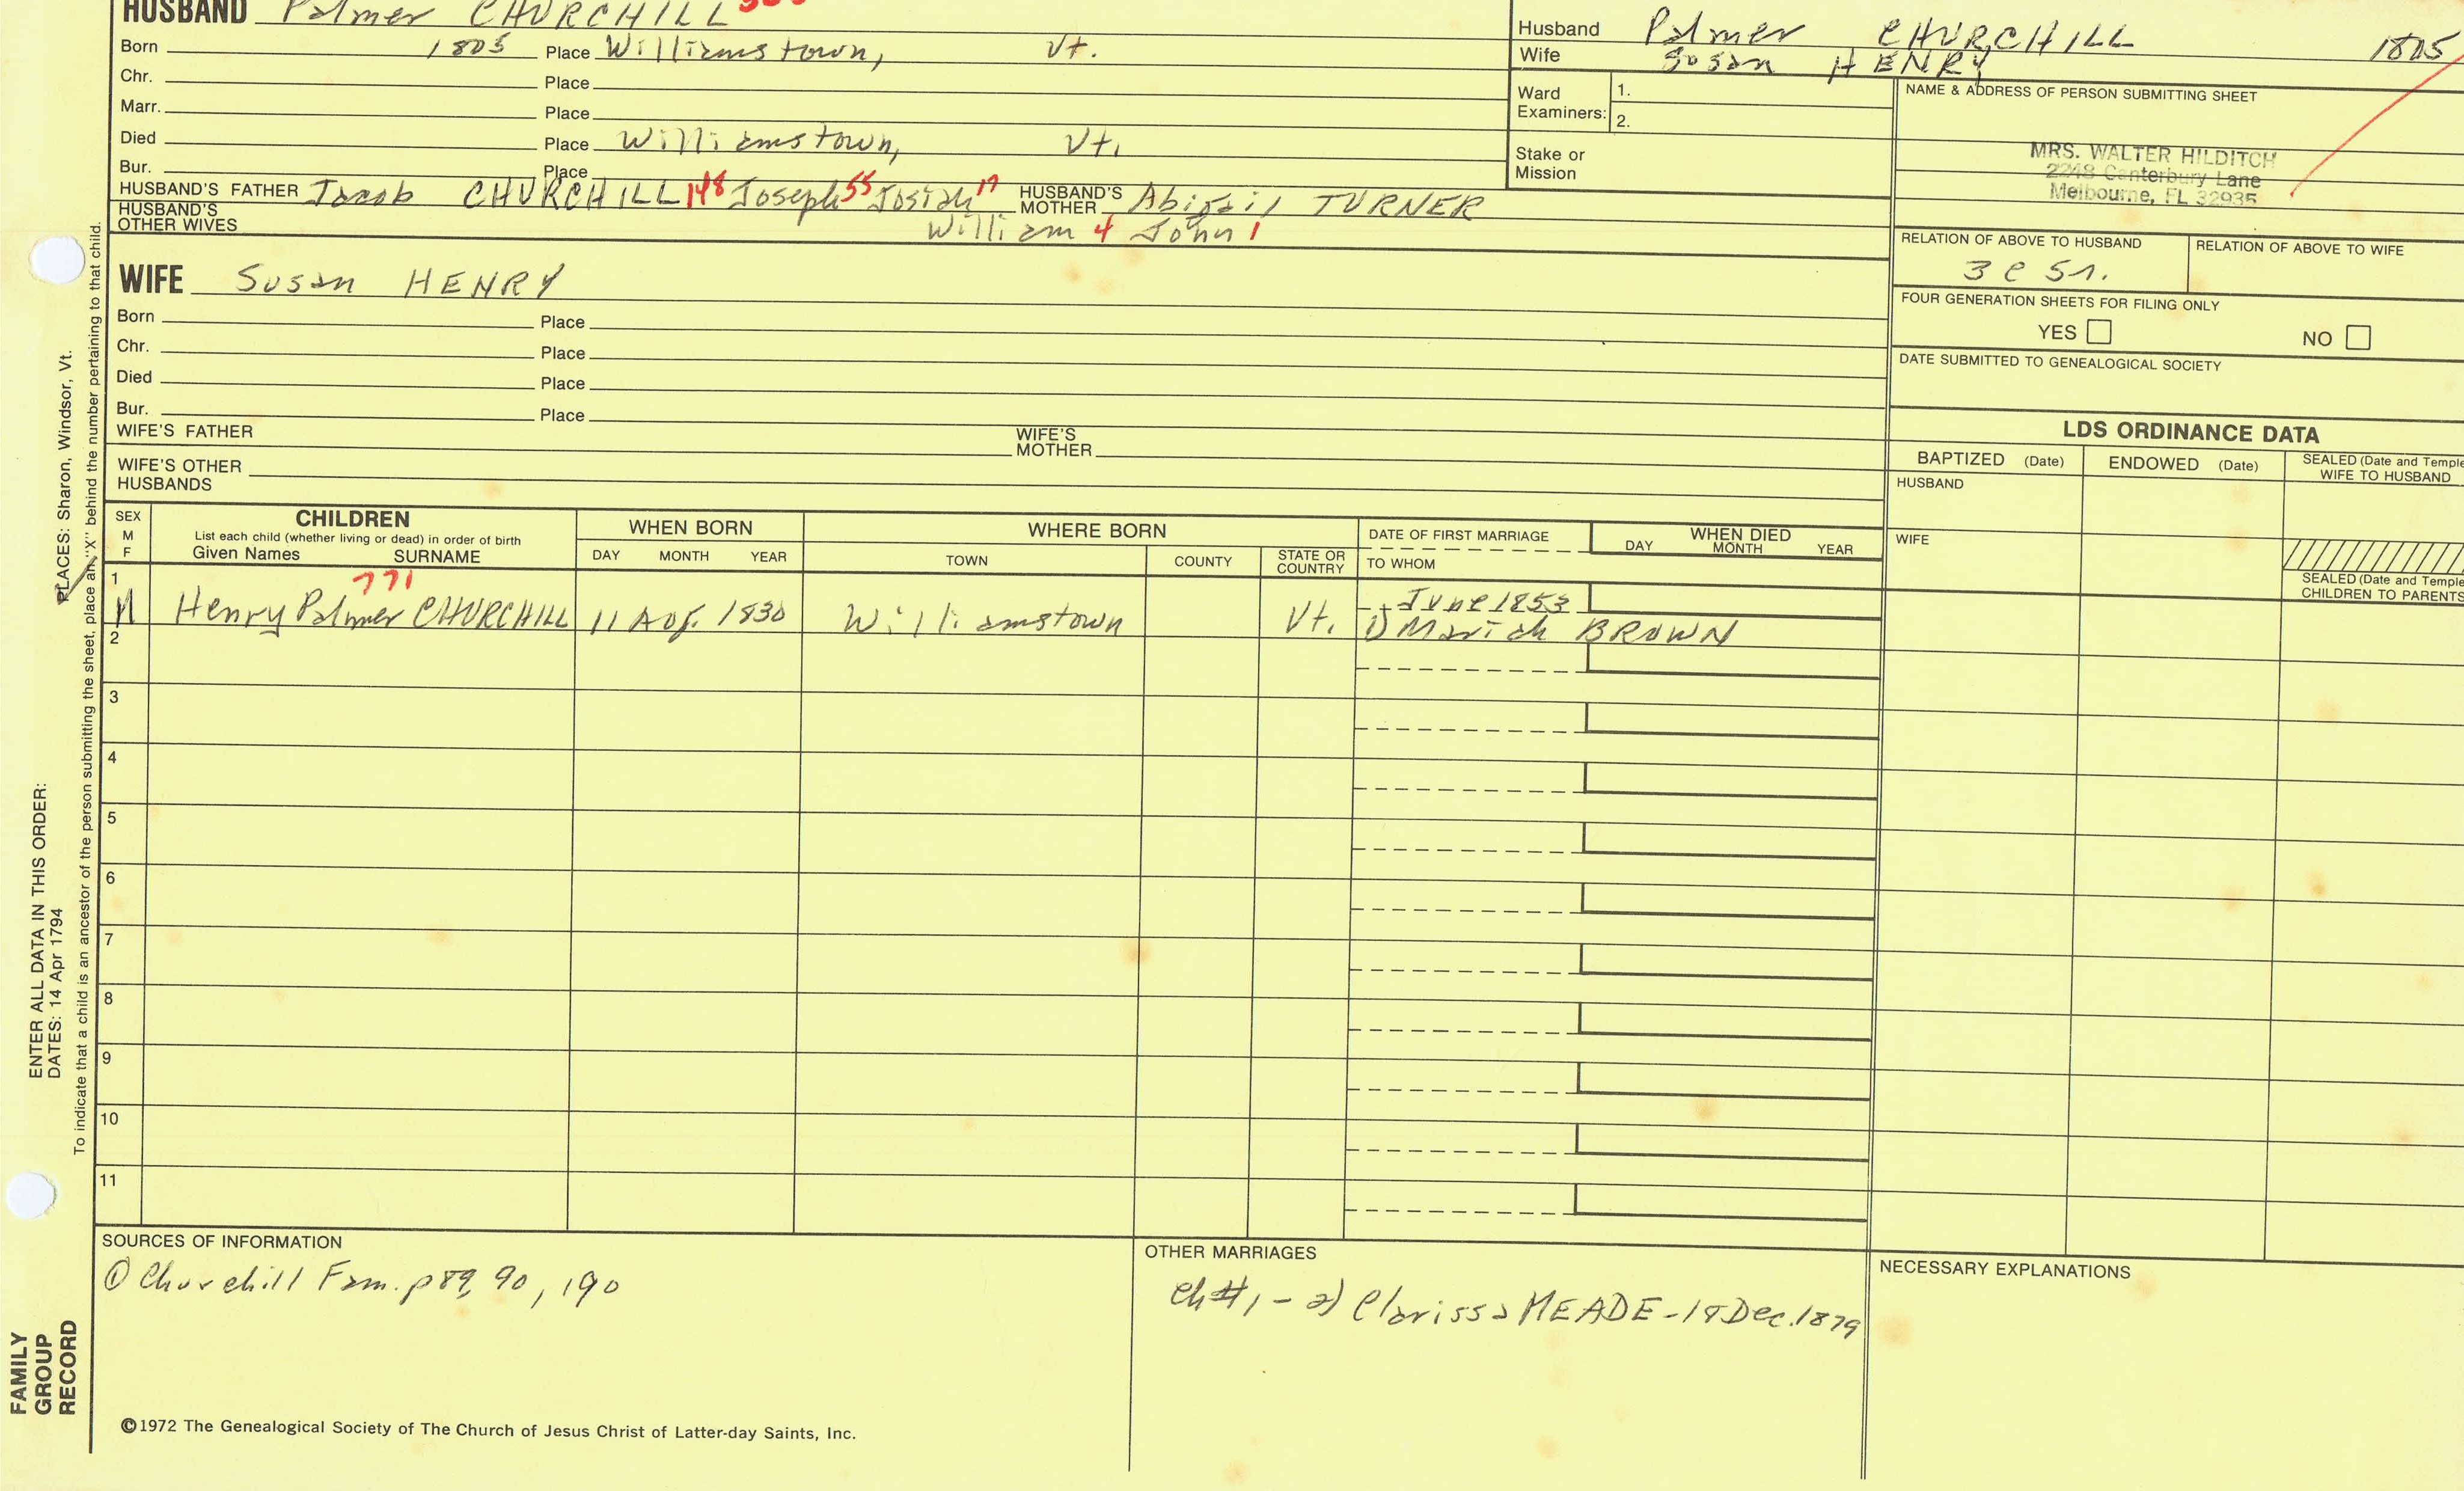 HUSBAND Palmer CHURCHILL
Born 1805 Place Williamstown, Vt.
Chr. Place
Marr. Place
Died Place Williamstown, Vt.
Bur. Place
HUSBAND'S FATHER Jacob CHURCHILL 148 Joseph 55 Josiah 17 HUSBAND'S MOTHER Abigail TURNER
HUSBAND'S OTHER WIVES William 4 John 1
Husband Palmer CHURCHILL 1805
Wife Susan HENRY
Ward Examiners: 1.
2.
Stake or Mission
NAME & ADDRESS OF PERSON SUBMITTING SHEET
MRS. WALTER HILDITCH
2248 Canterbury Lane
Melbourne, FL 32935
RELATION OF ABOVE TO HUSBAND RELATION OF ABOVE TO WIFE
3 c 5r.
FOUR GENERATION SHEETS FOR FILING ONLY
YES NO
DATE SUBMITTED TO GENEALOGICAL SOCIETY
WIFE Susan HENRY
Born Place
Chr. Place
Died Place
Bur. Place
WIFE'S FATHER WIFE'S MOTHER
WIFE'S OTHER HUSBANDS
LDS ORDINANCE DATA
BAPTIZED (Date) ENDOWED (Date) SEALED (Date and Temple
WIFE TO HUSBAND
HUSBAND
WIFE
SEALED (Date and Temple
CHILDREN TO PARENTS
SEX M F
CHILDREN
List each child (whether living or dead) in order of birth
Given Names SURNAME
WHEN BORN
DAY MONTH YEAR
WHERE BORN
TOWN COUNTY STATE OR COUNTRY
DATE OF FIRST MARRIAGE
TO WHOM
WHEN DIED
DAY MONTH YEAR
771
1 M Henry Palmer CHURCHILL 11 Aug. 1830 Williamstown Vt. June 1853
1) Mariah BROWN
2
3
4
5
6
7
8
9
10
11
SOURCES OF INFORMATION
① Churchill Fam. p 89, 90, 190
OTHER MARRIAGES
Ch #1 - 2) Clarissa MEADE - 18 Dec. 1879
NECESSARY EXPLANATIONS
©1972 The Genealogical Society of The Church of Jesus Christ of Latter-day Saints, Inc.
FAMILY
GROUP
RECORD
ENTER ALL DATA IN THIS ORDER:
DATES: 14 Apr 1794
PLACES: Sharon, Windsor, Vt.
To indicate that a child is an ancestor of the person submitting the sheet, place an "X" behind the number pertaining to that child.